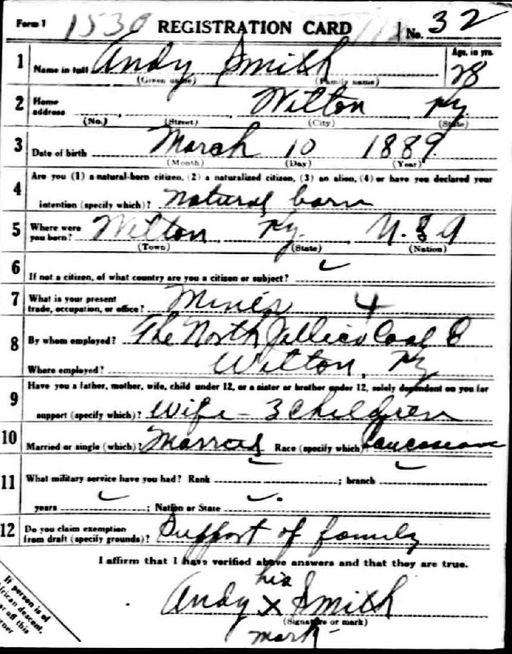 Form 1 1530 REGISTRATION CARD No. 32
1 Name in full Andy Smith Age, in yrs. 28
(Given name) (Family name)
2 Home address Wilton Ky
(No.) (Street) (City) (State)
3 Date of birth March 10 1889
(Month) (Day) (Year)
4 Are you (1) a natural-born citizen, (2) a naturalized citizen, (3) an alien, (4) or have you declared your
intention (specify which)? natural born
5 Where were you born? Wilton Ky. U.S A
(Town) (State) (Nation)
6 If not a citizen, of what country are you a citizen or subject?
7 What is your present trade, occupation, or office? Miner 4
8 By whom employed? The North Jellico Coal C
Where employed? Wilton, Ky
9 Have you a father, mother, wife, child under 12, or a sister or brother under 12, solely dependent on you for
support (specify which)? Wife - 3 children
10 Married or single (which)? Married Race (specify which)? Caucasian
11 What military service have you had? Rank ; branch
years ; Nation or State
12 Do you claim exemption from draft (specify grounds)? Support of family
I affirm that I have verified above answers and that they are true.
his
Andy x Smith
(Signature or mark)
mark
If person is of
African descent,
off this
corner